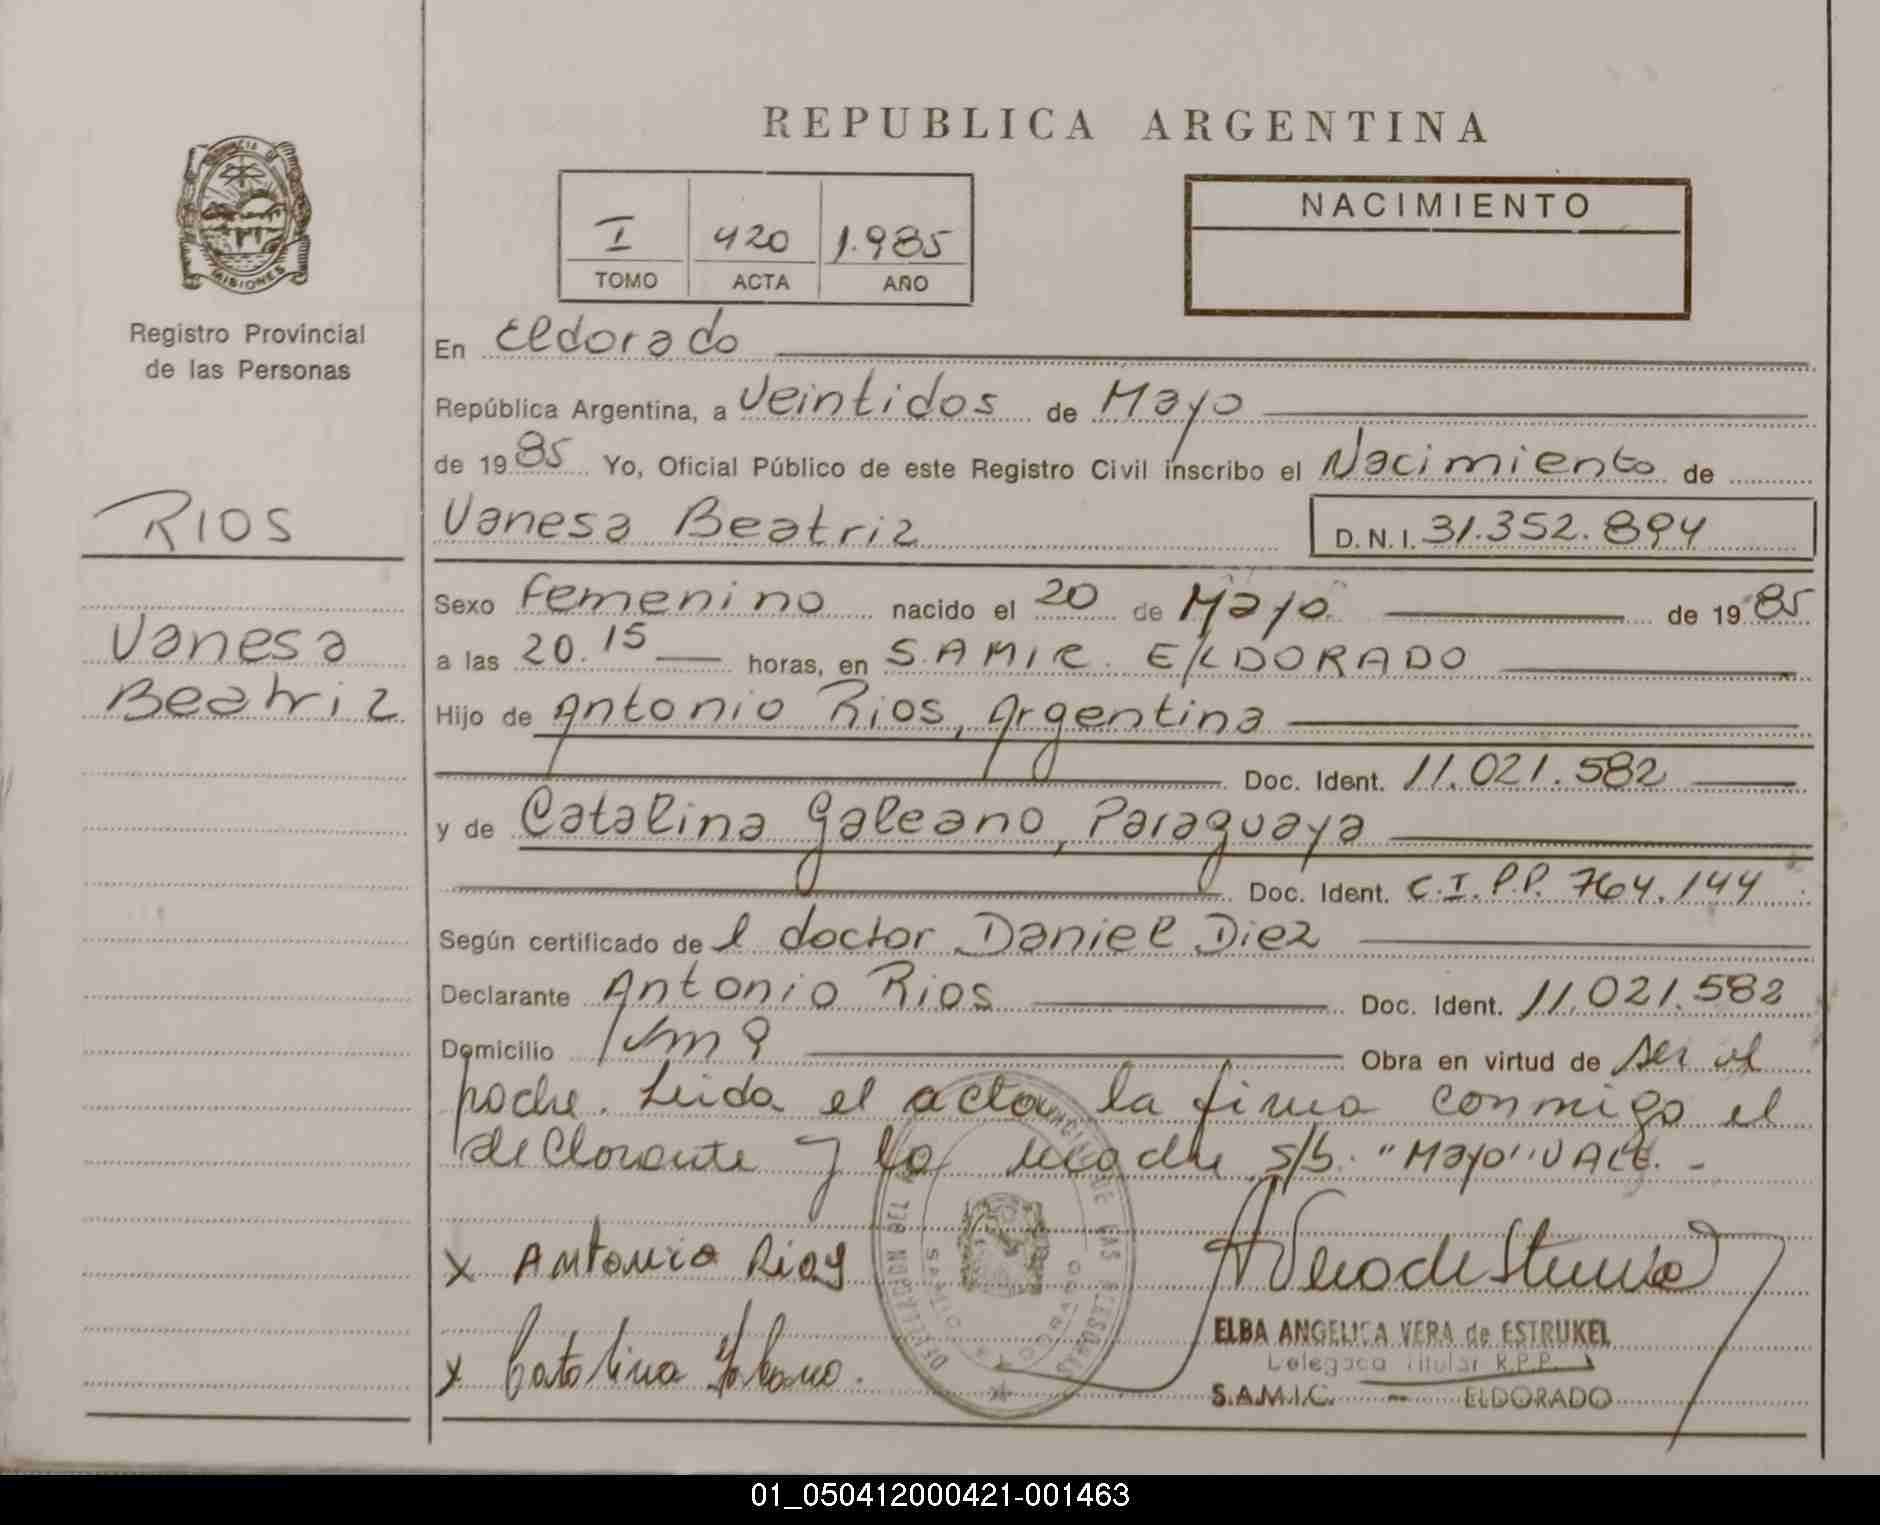 REPUBLICA ARGENTINA
PROVINCIA DE
MISIONES
Registro Provincial
de las Personas
RIOS
Vanesa
Beatriz
I 420 1.985
TOMO ACTA AÑO
NACIMIENTO
En Eldorado
República Argentina, a Veintidos de Mayo
de 19 85 Yo, Oficial Público de este Registro Civil inscribo el Nacimiento de
Vanesa Beatriz D.N.I. 31.352.894
Sexo Femenino nacido el 20 de Mayo de 19 85
a las 20.15 horas, en S.AMIC. ELDORADO
Hijo de Antonio Rios, Argentina
Doc. Ident. 11.021.582
y de Catalina Galeano, Paraguaya
Doc. Ident. C.I.P.P. 764.144
Según certificado de l doctor Daniel Diez
Declarante Antonio Rios Doc. Ident. 11.021.582
Domicilio Km 9 Obra en virtud de ser el
padre. Leida el acta la firma conmigo el
declarante y la madre s/b. "Mayo" VALE.-
x Antonio Rios
x Catalina
ELBA ANGELICA VERA de ESTRUKEL
Delegada Titular R.P.P.
S.A.M.I.C. - ELDORADO
01_050412000421-001463